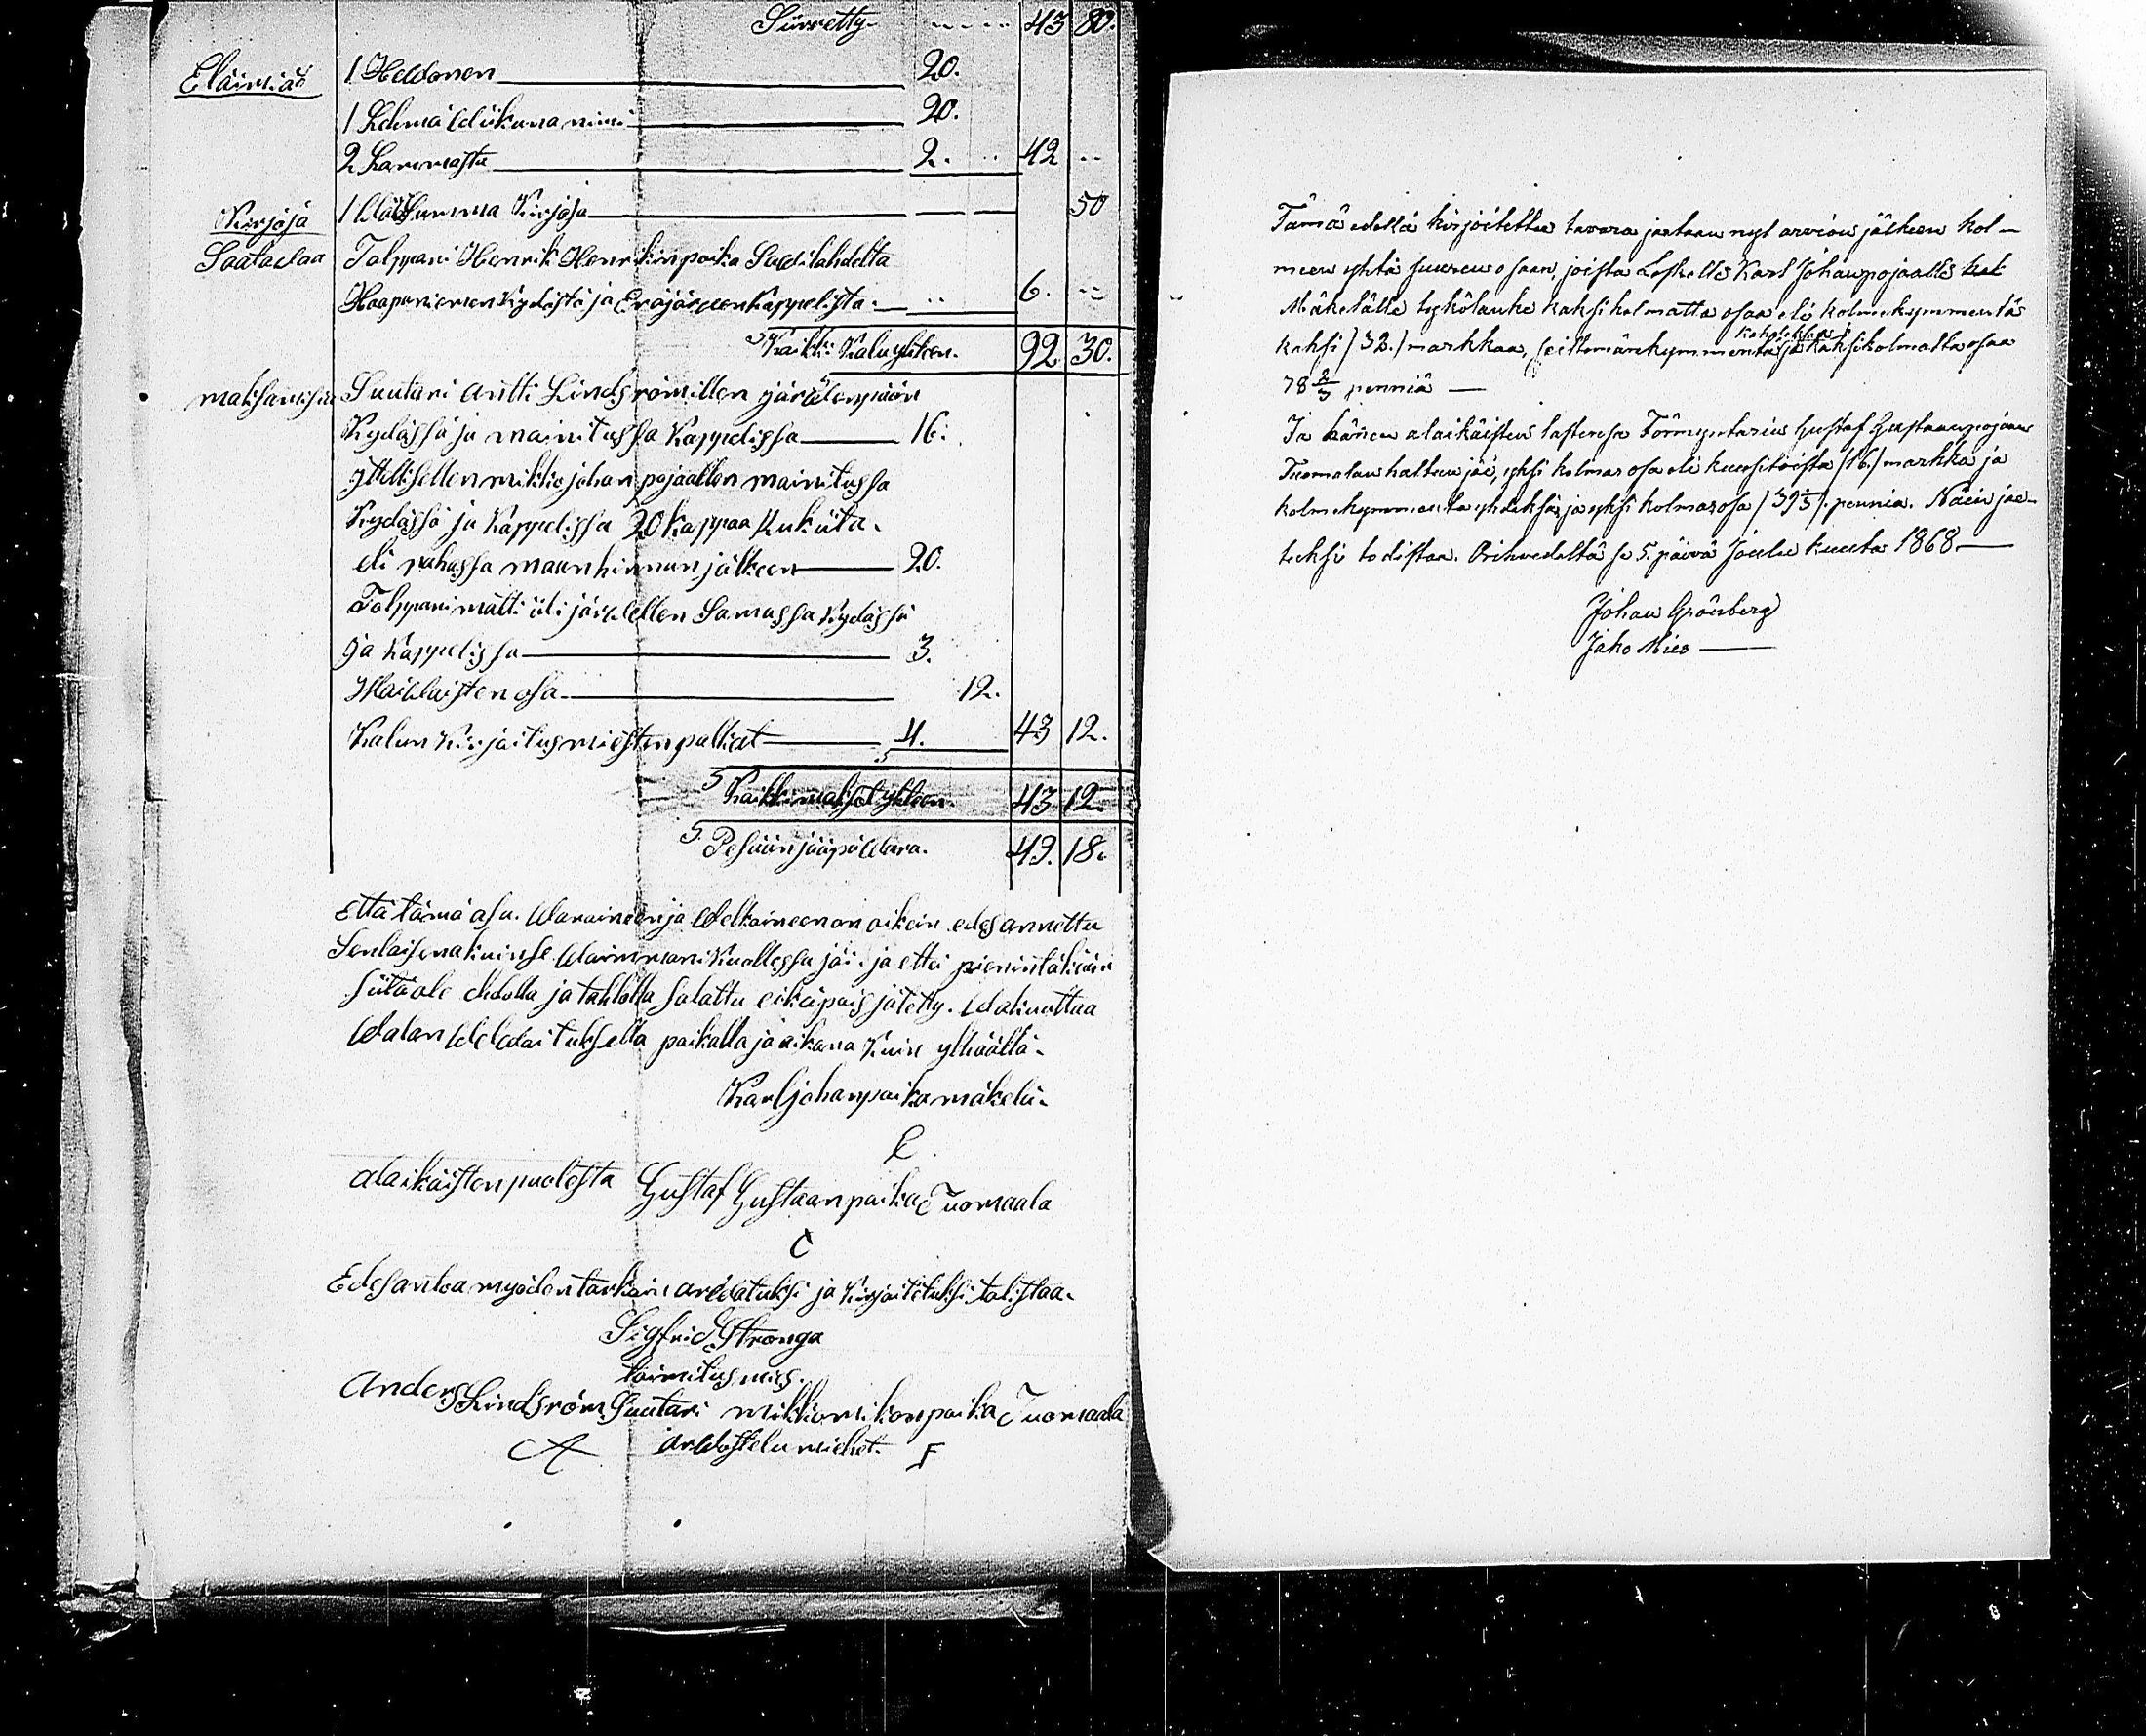 Siirretty 43 80.
Eläimiä 1 Hewonen 20.
1 Lehmä Wiikuna nimi 20.
2 Lammasta 2. 42 ..
Kirjoja 1 Wähä Summa Kirjoja 50
Saatawaa Talppari Henrik Henrikinpoika Sadilahdelta
Haapaniemen Kylästä ja Eräjärwen Kappelista 6. ..
S Kaikki Kalu yhteen. 92 30.
maksamisia Suutari Antti Lindsrömillen järwenpään
Kylässä ja mainitussa Kappelissa 16.
Ittellisellen mikkio johan pojaallen mainitussa
Kylässä ja Kappelissa 20 kappaa Rukiita.
eli rahassa maan hinnan jälkeen 20.
Talppari matti ili järwellen Samassa Kylässä
ja Kappelissa 3.
Waiwaisten osa 12.
Kalun Kirjoitus miesten palkat 4. 43 12.
S Kaikki maksot yhteen. 43 12
S. Pesään jääpä Wara. 49. 18.
Että tämä asu. Waroineen ja Welkoineen on oikein edes annettu
Senlaisena kuin se Waimmoni Kuollessa jäi. ja ettei pienintäkään
siitä ole ehdolla ja tahdolla salattu eikä pois jätetty. Wakuuttaa
Walan Welwoituksella paikalla ja aikana Kuin ylhäällä.
Karl johanpoika mäkelä.
alaikäisten puolesta Gustaf Gustaan poika Tuomaala
C
Edesantoa myöden tarkoin arwatuksi ja Kirjoitetuksi todistaa.
Sigfrid Stronga
toimitus mies.
Anders Lindsröm Suutari mikkio mikon poika Tuomaala
A arwostelu miehet. F
Tämä edellä kirjoitettu tavara jaetaan nyt arvion jälkeen kol-
meen yhtä suureen osaan, joista Leskelle Karl Johanpojaalle kak
Mäkelälle tykölanke kaksi kolmatta osaa eli kolmekymmentä
kahdeksan
kaksi /32./ markkaa, seittemänkymmentä ja kaksikolmatta osaa
78 2/3 penniä
Ja hänen alaikäisten lastensa Förmyntärin Gustaf Gustaanpojaan
Tuomalan haltuun jää, yksi kolmas osa eli kuusitoista /16./ markka ja
kolmekymmentä yhdeksän ja yksi kolmas osa /39 1/3/. penniä. Näin jae-
tuksi todistaa. Orihvedeltä se 5. päivä Joulu kuuta 1868
Johan Grönberg
Jako Mies